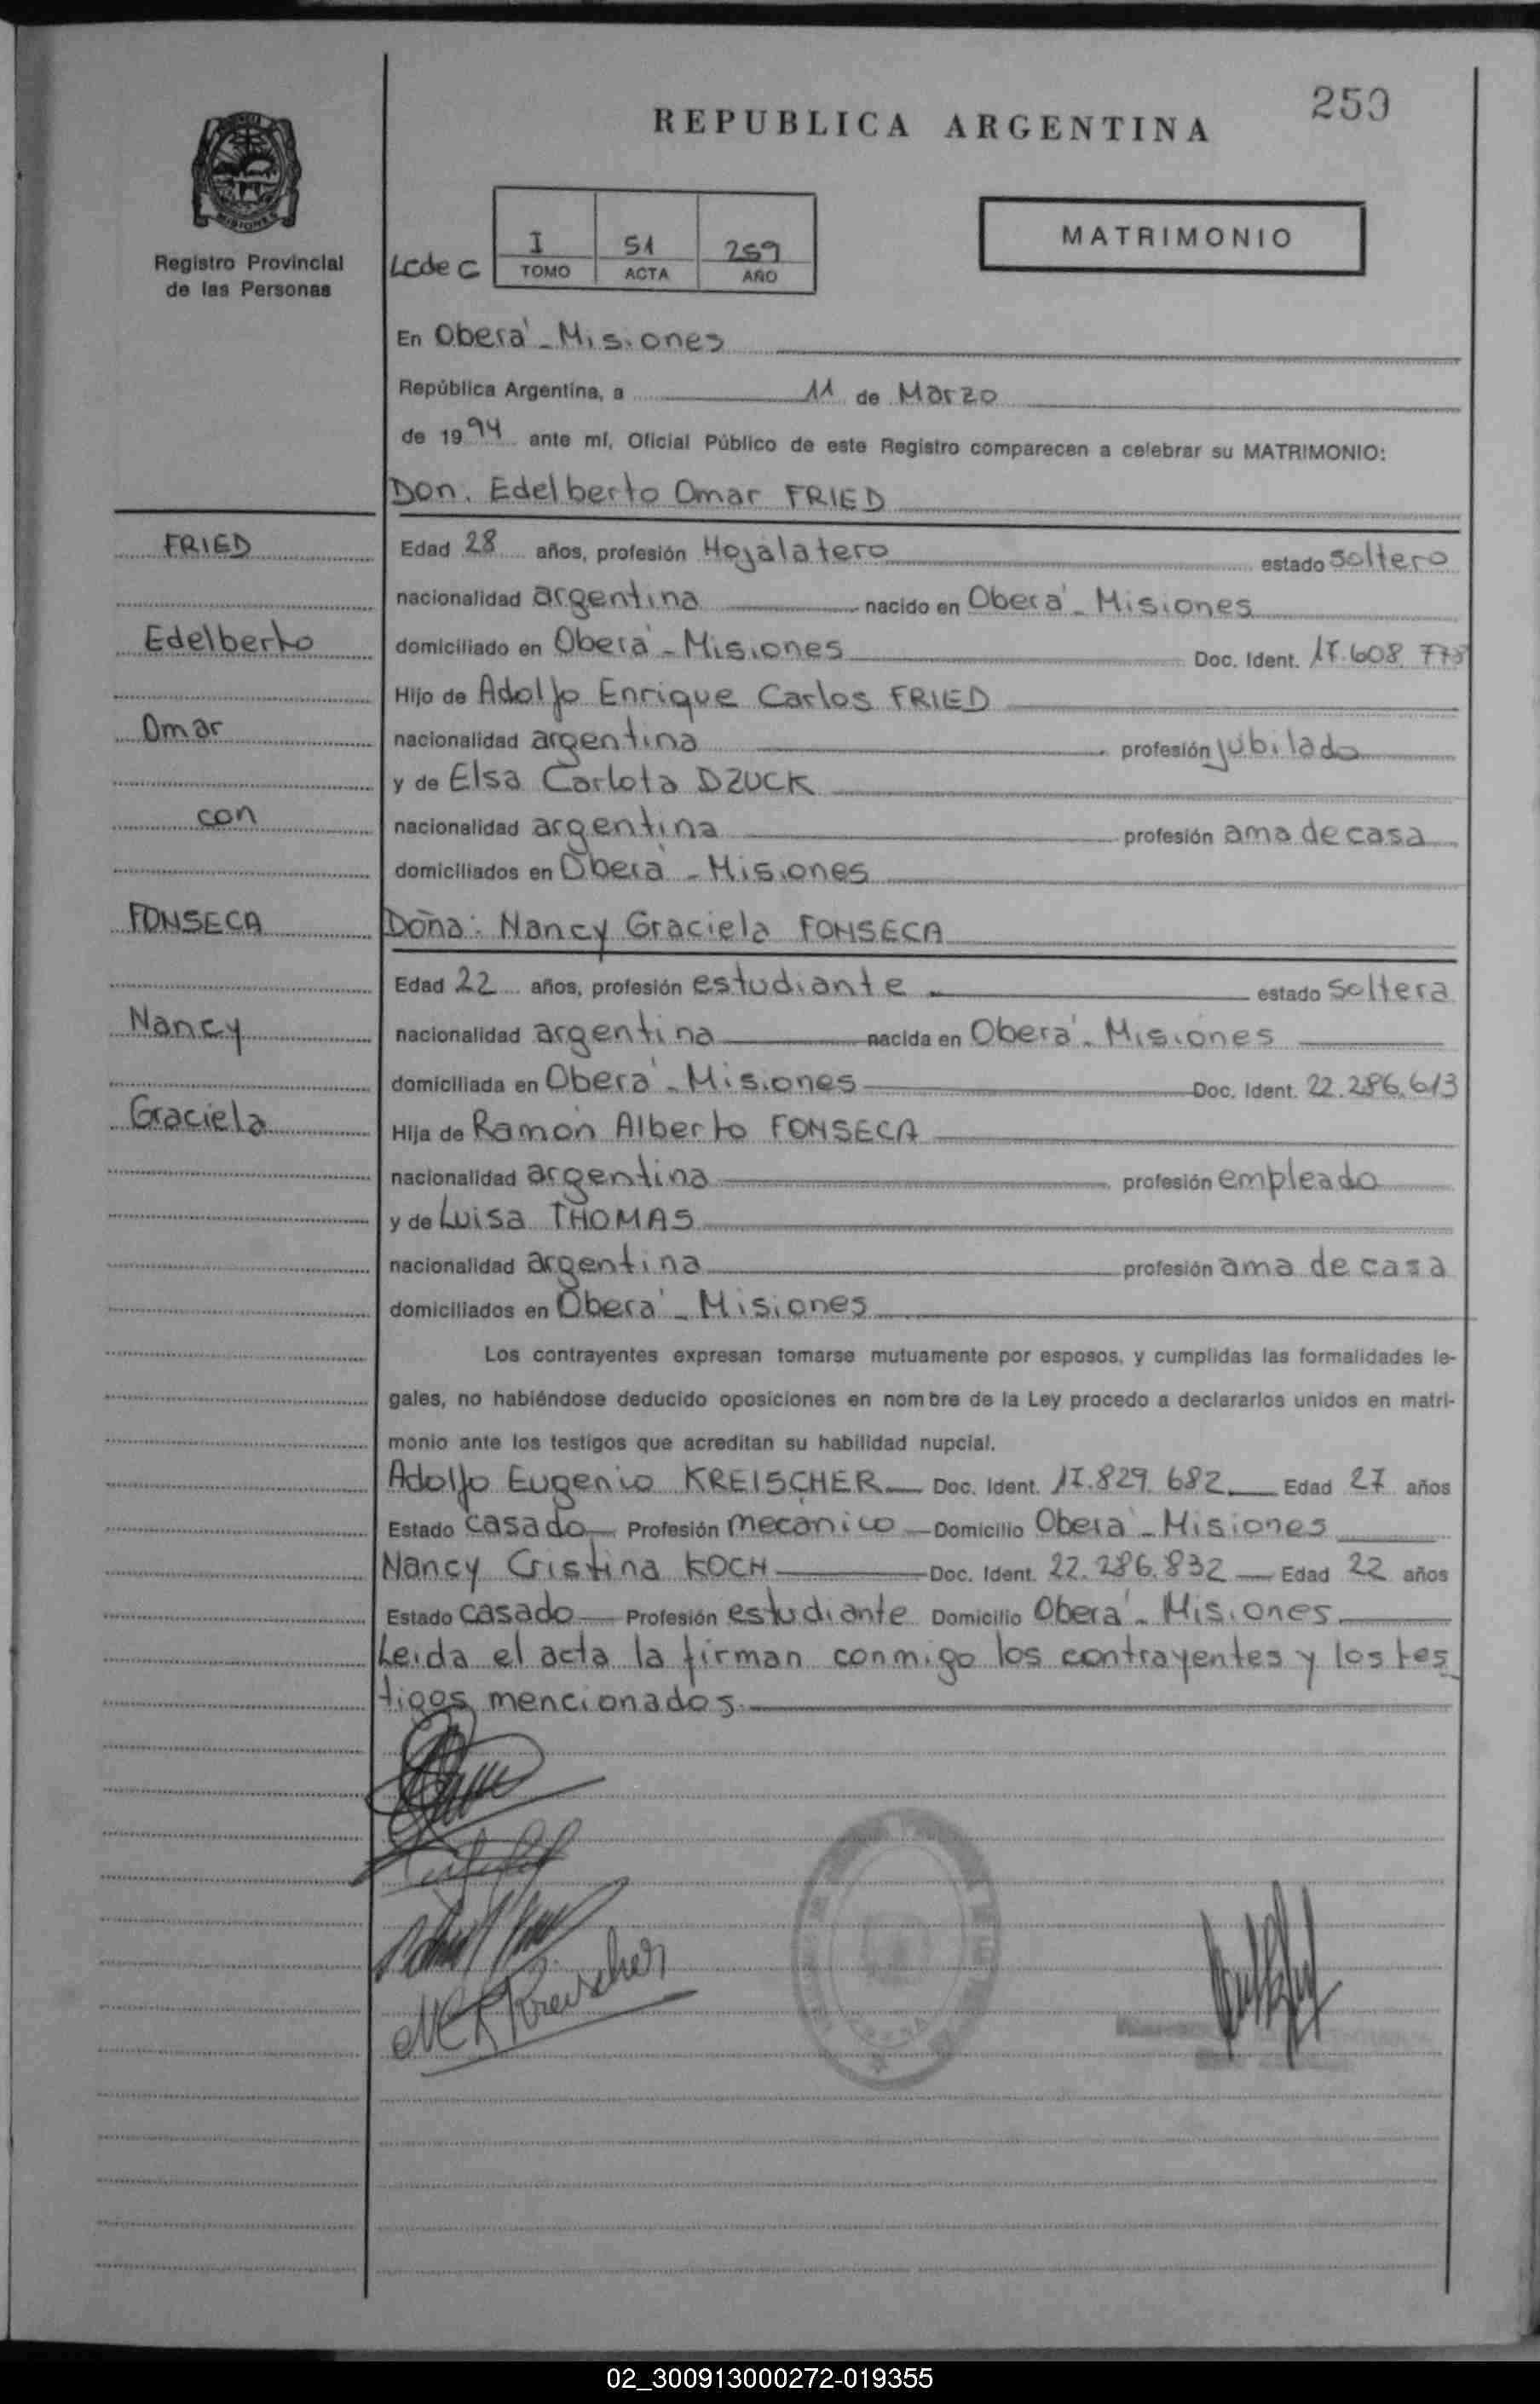 259
REPUBLICA ARGENTINA
MISIONES
Registro Provincial
de las Personas
Lcde C
I 51 259
TOMO ACTA AÑO
MATRIMONIO
En Oberá - Misiones
República Argentina, a 11 de Marzo
de 1994 ante mí, Oficial Público de este Registro comparecen a celebrar su MATRIMONIO:
Don. Edelberto Omar FRIED
FRIED
Edad 28 años, profesión Hojalatero estado soltero
nacionalidad argentina nacido en Oberá - Misiones
Edelberto
domiciliado en Oberá - Misiones Doc. Ident. 17.608.778
Hijo de Adolfo Enrique Carlos FRIED
Omar
nacionalidad argentina profesión jubilado
y de Elsa Carlota DZUCK
con
nacionalidad argentina profesión ama de casa
domiciliados en Oberá - Misiones
FONSECA
Doña: Nancy Graciela FONSECA
Edad 22 años, profesión estudiante estado soltera
Nancy
nacionalidad argentina nacida en Oberá - Misiones
domiciliada en Oberá - Misiones Doc. Ident. 22.286.613
Graciela
Hija de Ramón Alberto FONSECA
nacionalidad argentina profesión empleado
y de Luisa THOMAS
nacionalidad argentina profesión ama de casa
domiciliados en Oberá - Misiones
Los contrayentes expresan tomarse mutuamente por esposos, y cumplidas las formalidades le-
gales, no habiéndose deducido oposiciones en nombre de la Ley procedo a declararlos unidos en matri-
monio ante los testigos que acreditan su habilidad nupcial.
Adolfo Eugenio KREISCHER Doc. Ident. 17.829.682 Edad 27 años
Estado casado Profesión mecánico Domicilio Oberá - Misiones
Nancy Cristina KOCH Doc. Ident. 22.286.832 Edad 22 años
Estado casado Profesión estudiante Domicilio Oberá - Misiones
Leida el acta la firman conmigo los contrayentes y los tes
tigos mencionados.
02_300913000272-019355